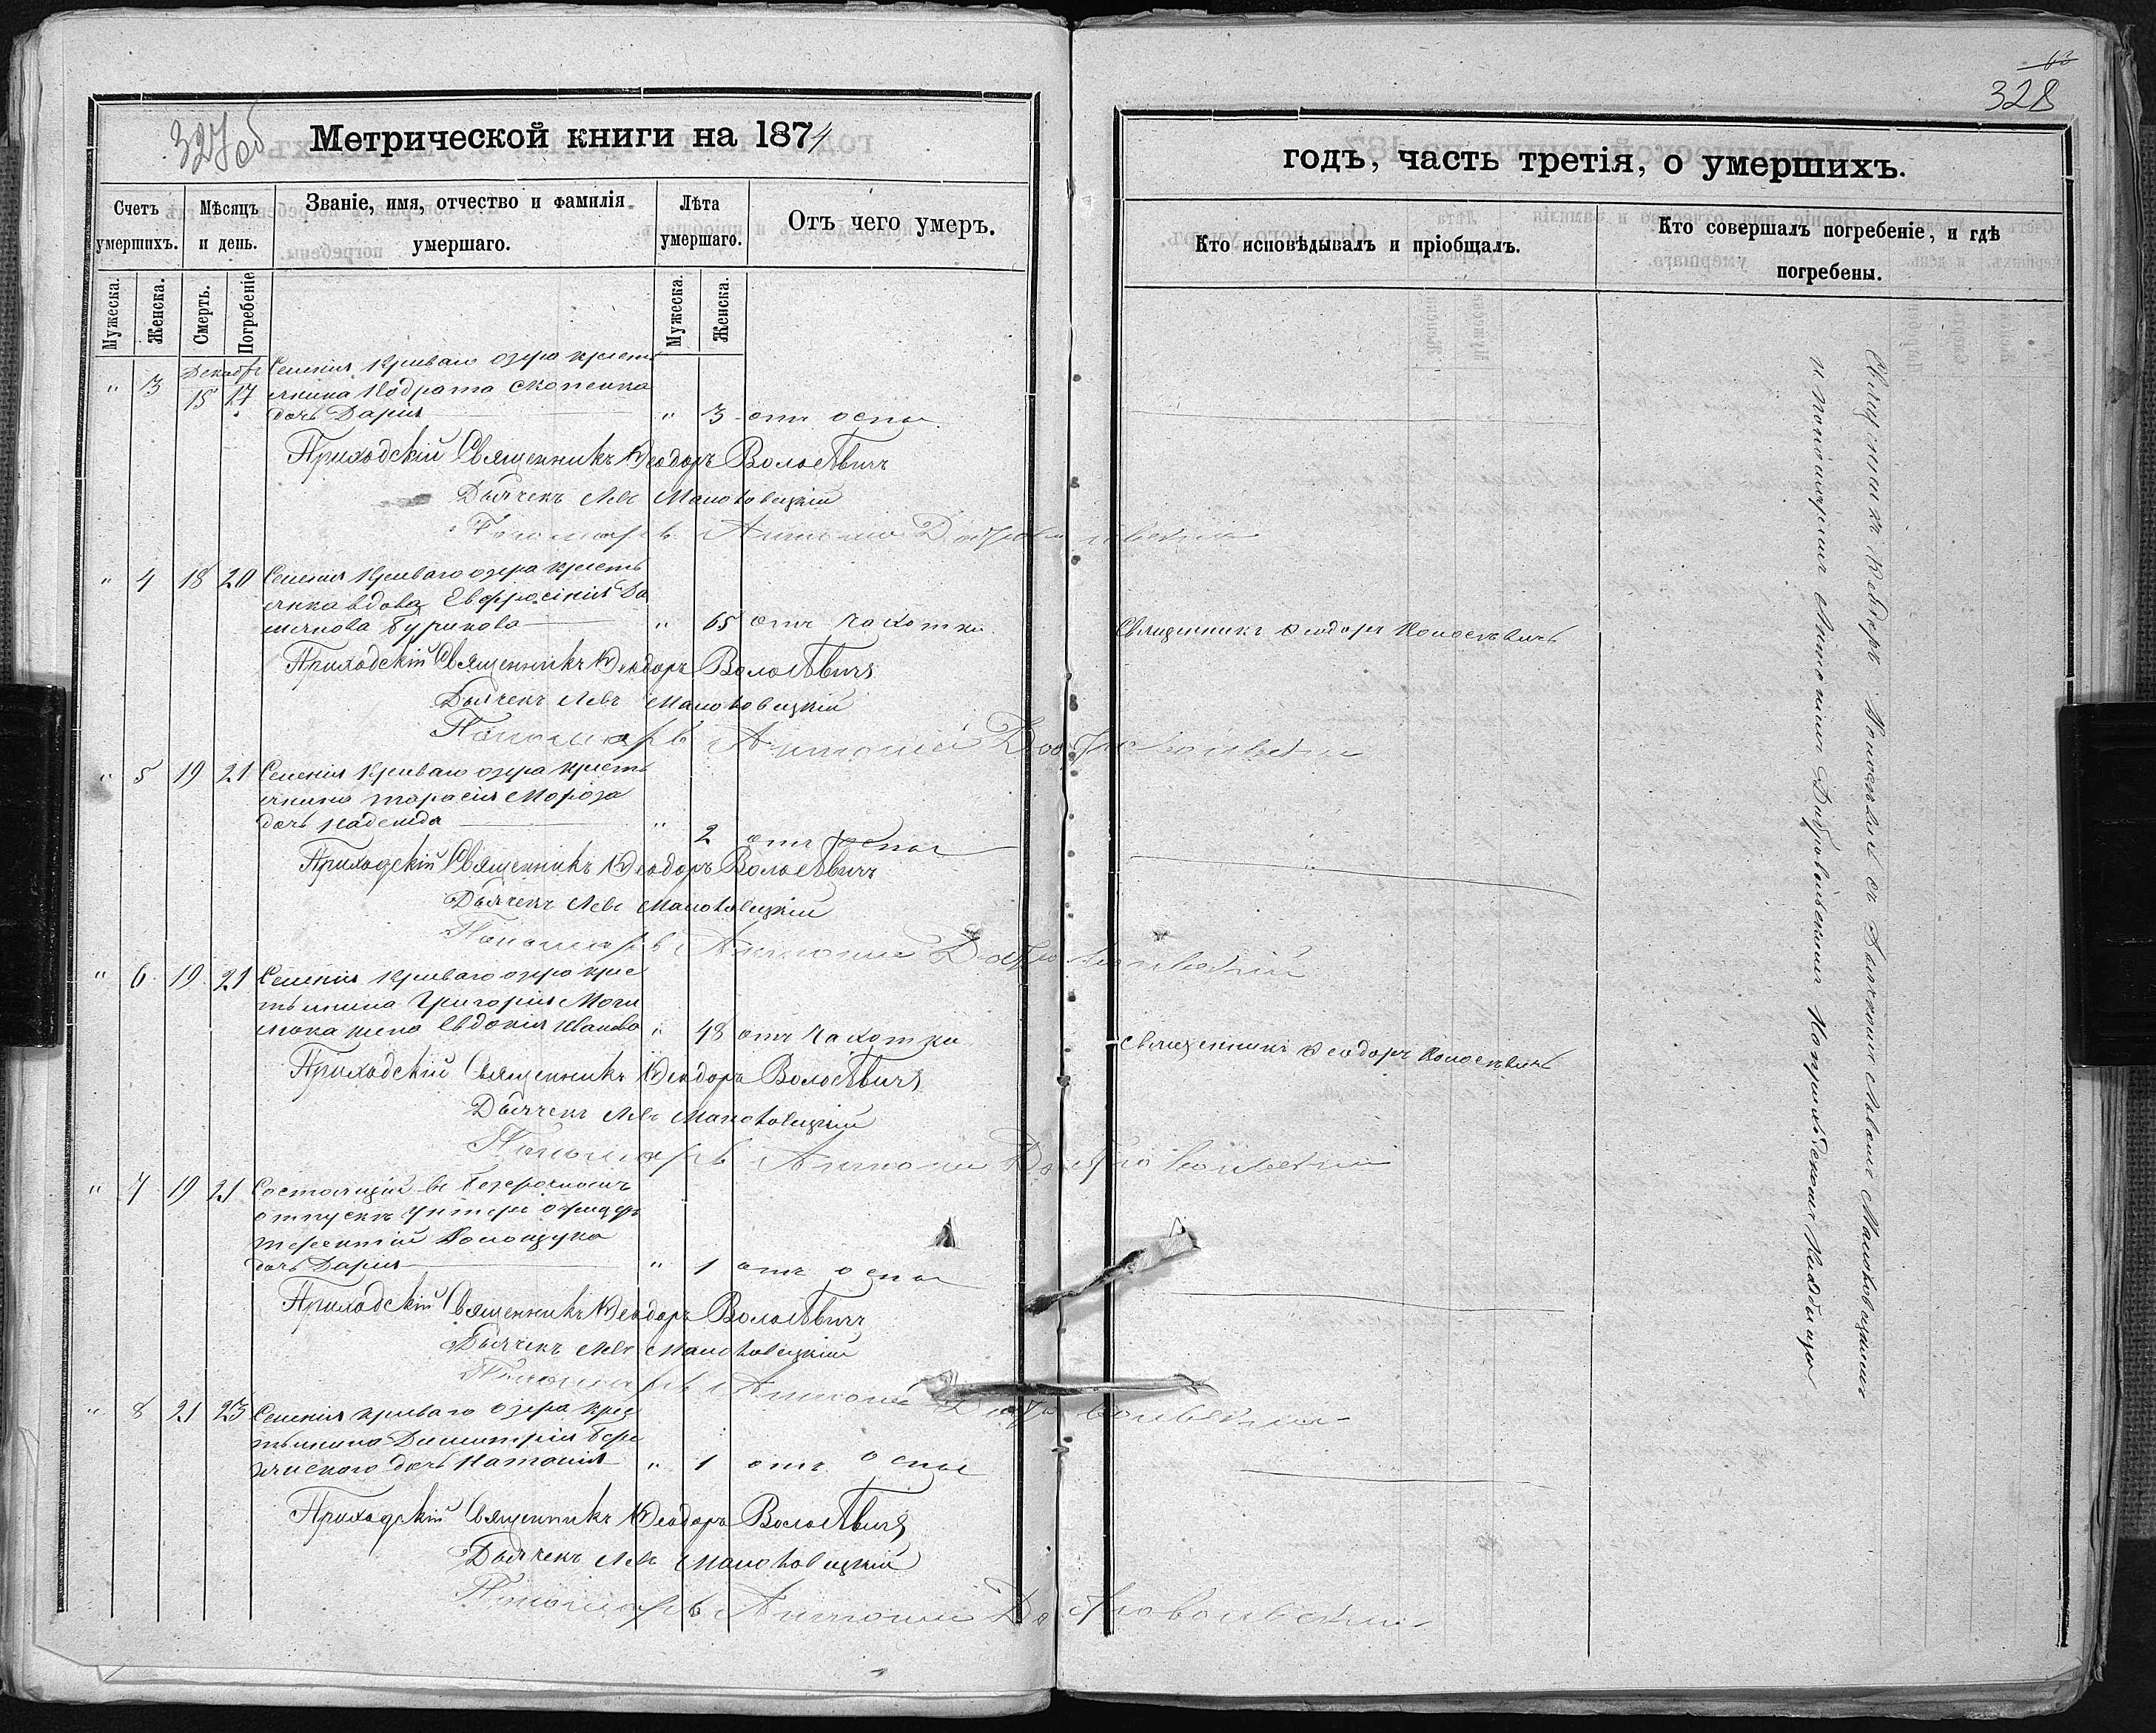 327об
Метрической книги на 1874
Счетъ умершихъ.
Мѣсяцъ и день.
Званіе, имя, отчество и фамилія умершаго.
Лѣта умершаго.
Отъ чего умеръ.
Мужеска.
Женска.
Смерть.
Погребеніе
Мужеска.
Женска.
Декабрь
" 3 15 17 Селенія Криваго озера кресть
янина Кодрата Скопенка
дочь Дарія " 3 отъ оспы
Приходскій Священникъ Ѳеодоръ
Дьячекъ Левъ Маньковецкій
Пономарь Антоній
" 4 18 20 Селенія Криваго озера кресть
янка вдова Евфросинія Да
міянова Бурикова " 65 отъ чахотки
Приходскій Священникъ Ѳеодоръ
Дьячекъ Левъ Маньковецкій
Пономарь Антоній
" 5 19 21 Селенія Криваго озера кресть
янина Тарасія Мороза
дочь Надежда " 2 отъ оспы
Приходскій Священникъ Ѳеодоръ
Дьячекъ Левъ Маньковецкій
Пономарь Антоній
" 6 19 21 Селенія Криваго озера крес
тьянина Григорія Моги
люка жена Евдокія Иванова " 48 отъ чахотки
Приходскій Священникъ Ѳеодоръ
Дьячекъ Левъ Маньковецкій
Пономарь Антоній
" 7 19 21 Состоящій въ безсрочномъ
отпускѣ унтеръ офицеръ
Терентій
дочь Дарія " 1 отъ оспы
Приходскій Священникъ Ѳеодоръ
Дьячекъ Левъ Маньковецкій
Пономарь Антоній
" 8 21 23 Селенія Криваго озера крес
тьянина Димитрія
дочь Наталія " 1 отъ оспы
Приходскій Священникъ Ѳеодоръ
Дьячекъ Левъ Маньковецкій
Пономарь Антоній
328
годъ, часть третія, о умершихъ.
Кто исповѣдывалъ и пріобщалъ.
Кто совершалъ погребеніе, и гдѣ погребены.
Священникъ Ѳеодоръ
Священникъ Ѳеодоръ
Священникъ Ѳеодоръ съ дьячкомъ Львомъ Маньковецкимъ
и пономаремъ Антоніемъ на приходскомъ кладбищѣ